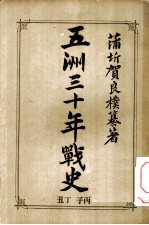 蒲圻賀良樸纂著
五洲三十年戰史
丙子 丁丑